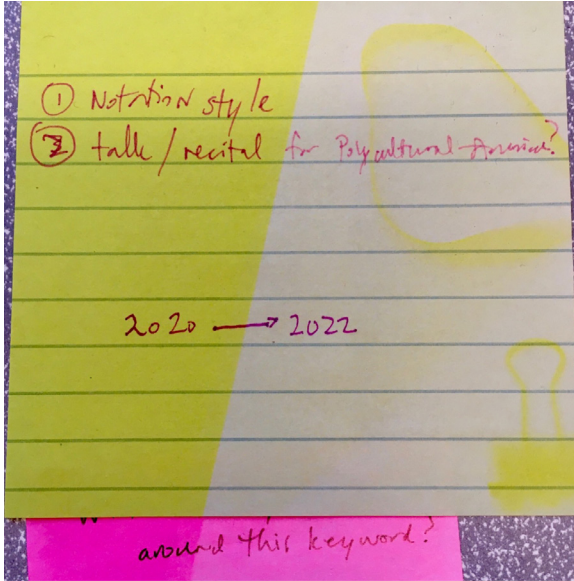 ① Notation style
② talk / recital for Polycultural America?
2020 → 2022
around this keyword?